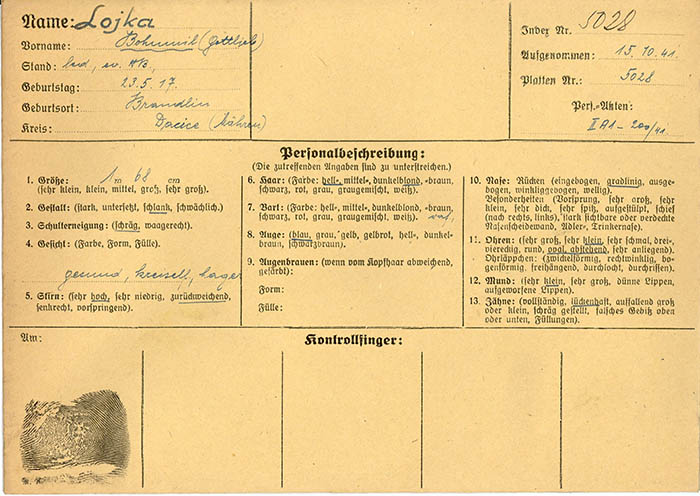 Name: Lojka
Vorname: Bohumil (Gottlieb)
Stand: led., ev. AB.,
Geburtstag: 23.5.17.
Geburtsort: Brandlin
Kreis: Dacice (Mähren)
Index Nr. 5028
Aufgenommen: 15.10.41.
Platten Nr.: 5028
Pers.-Akten:
II A1 - 200/41.
Personalbeschreibung:
(Die zutreffenden Angaben sind zu unterstreichen.)
1. Größe: 1 m 68 cm
(sehr klein, klein, mittel, groß, sehr groß).
2. Gestalt: (stark, untersetzt, schlank, schwächlich).
3. Schulterneigung: (schräg, waagerecht).
4. Gesicht: (Farbe, Form, Fülle).
gesund, hager
5. Stirn: (sehr hoch, sehr niedrig, zurückweichend,
senkrecht, vorspringend).
6. Haar: (Farbe: hell-, mittel-, dunkelblond, -braun,
schwarz, rot, grau, graugemischt, weiß).
7. Bart: (Farbe: hell-, mittel-, dunkelblond, -braun,
schwarz, rot, grau, graugemischt, weiß).
8. Auge: (blau, grau, gelb, gelbrot, hell-, dunkel-
braun, schwarzbraun).
9. Augenbrauen: (wenn vom Kopfhaar abweichend,
gefärbt):
Form:
Fülle:
10. Nase: Rücken (eingebogen, gradlinig, ausge-
bogen, winkliggebogen, wellig).
Besonderheiten (Vorsprung, sehr groß, sehr
klein, sehr dick, sehr spitz, aufgestülpt, schief
(nach rechts, links), stark sichtbare oder verdeckte
Nasenscheidewand, Adler-, Trinkernase).
11. Ohren: (sehr groß, sehr klein, sehr schmal, drei-
viereckig, rund, oval, abstehend, sehr anliegend).
Ohrläppchen: (zwickelförmig, rechtwinklig, bo-
genförmig, freihängend, durchlocht, durchrissen).
12. Mund: (sehr klein, sehr groß, dünne Lippen,
aufgeworfene Lippen).
13. Zähne: (vollständig, lückenhaft, auffallend groß
oder klein, schräg gestellt, falsches Gebiß oben
oder unten, Füllungen).
Am:
Kontrollfinger: